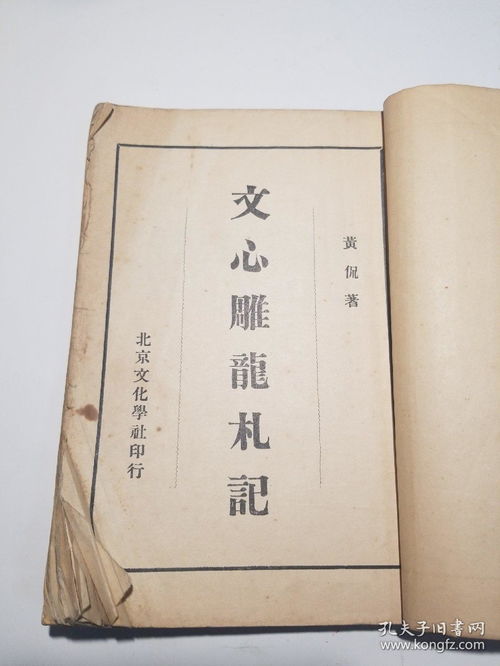 黃侃著
文心雕龍札記
北京文化學社印行
孔夫子旧书网
www.kongfz.com